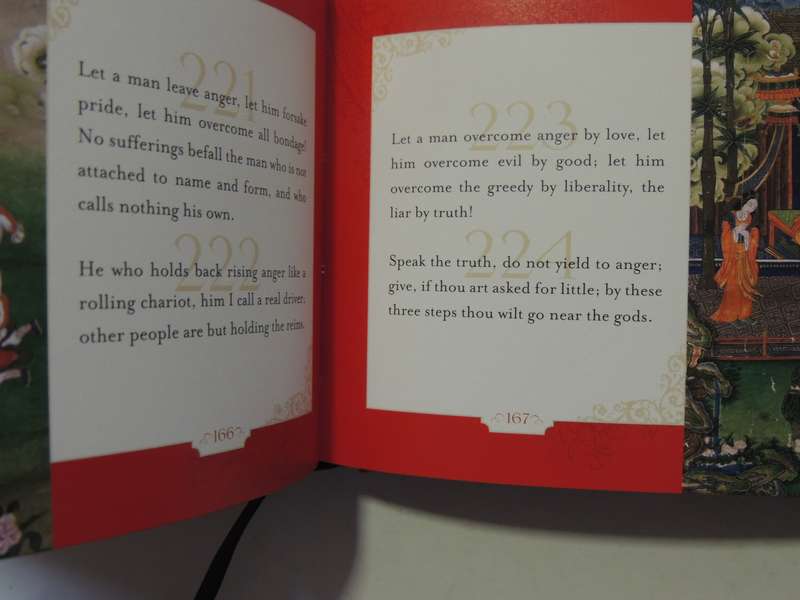 221
Let a man leave anger, let him forsake
pride, let him overcome all bondage!
No sufferings befall the man who is not
attached to name and form, and who
calls nothing his own.
222
He who holds back rising anger like a
rolling chariot, him I call a real driver;
other people are but holding the reins.
166
223
Let a man overcome anger by love, let
him overcome evil by good; let him
overcome the greedy by liberality, the
liar by truth!
224
Speak the truth, do not yield to anger;
give, if thou art asked for little; by these
three steps thou wilt go near the gods.
167